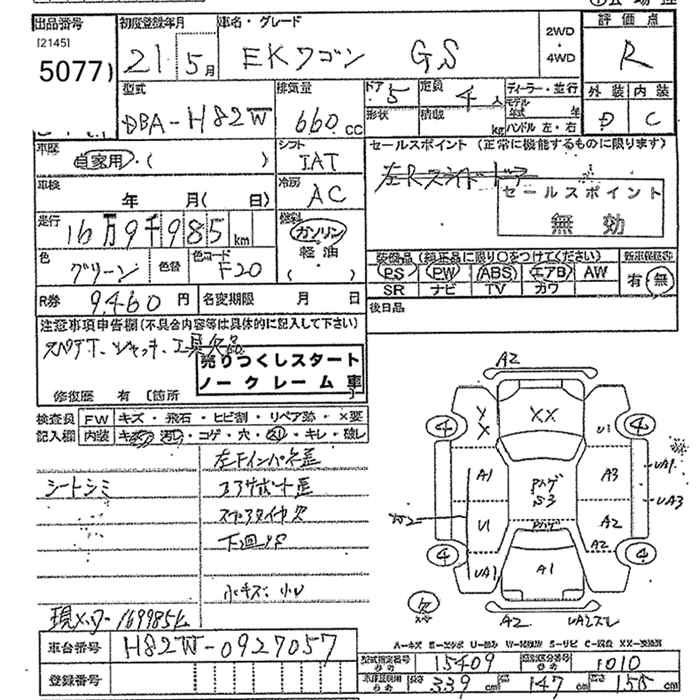 出品番号
[2145]
5077
初度登録年月
21 5月
車名・グレード
EKワゴン GS
2WD
・
4WD
評価点
R
型式
DBA-H82W
排気量
660 cc
ドア 5
定員 4人
形状
積載 kg
ディーラー・並行
モデル年式 年
ハンドル 左・右
外装 内装
D C
車歴
自家用・( )
シフト
IAT
セールスポイント (正常に機能するものに限ります)
左Rスライドドア
セールスポイント
無効
車検
年 月( 日)
冷房
AC
走行
16万9千985km
燃料
ガソリン
軽油
( )
色
グリーン
色替
色コード
F20
装備品 (純正品に限り○をつけてください)
PS PW ABS エアB AW
SR ナビ TV カワ
新車保証書
有・無
R券 9,460円
名変期限 月 日
後日品
注意事項申告欄 (不具合内容等は具体的に記入して下さい)
スペアT、ジャッキ、工具欠品
売りつくしスタート
ノークレーム車
修復歴 有 〔箇所
検査員
記入欄
FW キズ・飛石・ヒビ割・リペア跡・×要
内装 キズ・汚レ・コゲ・穴・スレ・キレ・破レ
左Fインパネ歪
シートシミ
コアサポート歪
スペアタイヤ欠
下回リサビ
小キズ、小U
現メーター169985k
車台番号 H82W-0927057
登録番号
A2
XX
U1
4
4
A1
A3
UA1
UA3
U1
A2
A2
UA1
A1
4
4
欠
A2
A-キズ E-エクボ U-凹み S-サビ XX-交換済
型式指定番号 15409
類別区分番号 1010
長さ 339cm
幅 147cm
高さ 155cm